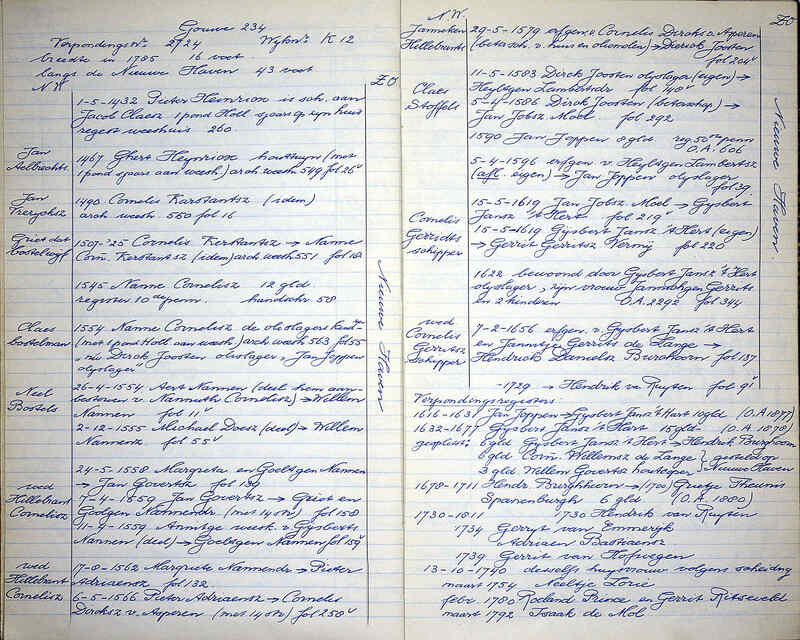 Gouwe 234
Verpondingsno. 2724 Wykno. K 12
breedte in 1785 16 voet
langs de Nieuwe Haven 43 voet
N.W.
ZO
1-5-1432 Pieter Heinricx is sch. aan
Jacob Claesz 1 pond Holl spaars op zyn huis
regest weeshuis 260
Jan
Aelbrechts
1467 Ghert Heynricxz houthuyn (met
1 pond spaars aan weesh) arch. weesh 549 fol 26v
Jan
1490 Cornelis Karstantsz (idem)
arch weesh. 550 fol 16
Griet dat
bostelwyf
1507-'25 Cornelis Kerstantsz → Nanne
Corn. Kerstantsz (idem) arch weesh 551 fol 18
1545 Nanne Cornelisz 12 gld.
register 10de penn. handschr 58
Claes
bostelman
1554 Nanne Cornelisz de olieslagers
(met 1 pond Holl aan weesh) arch weesh 563 fol 55
nu Dirck Joosten olieslager, nu Jan Joppen
olyslager
Neel
Bostels
26-4-1554 Aert Nannen (deel hem aan-
bestorven v Nannuth Cornelisz) → Willem
Nannen fol 11v
2-12-1555 Michael Dresz (deel) → Willem
Nannensz. fol 55v
24-5-1558 Margreta en Goeltgen Nannen
→ Jan Govertsz fol 139
wed
Hillebrant
Cornelisz
7-4-1559 Jan Govertsz → Griet en
Goelgen Nannendr (met 14 str) fol 158
11-4-1559 Anntge weed. v Gysbert
Nannen (deel) → Goeltgen Nannen fol 159v
wed
Hillebrant
Cornelisz
17-8-1562 Margriete Nannendr → Pieter
Adriaensz fol 132
6-5-1566 Pieter Adriaensz → Cornelis
Dircksz v. Asperen (met 14 str) fol 258v
Nieuwe Haven
N.W.
ZO
Janneken
Hillebrants
29-5-1579 erfgen v Cornelis Dircks v. Asperen
(betersch. v. huis en oliemolen) → Dierick Joosten
fol 204v
11-5-1583 Dirck Joosten olyslager (eigen) →
Heyltgen Lambertsdr fol 40v
Claes
Stoffels
5-4-1586 Dirck Joosten (beterschap) →
Jan Jobsz Moel fol 292
1590 Jan Joppen 8 gld reg. 50ste penn
O.A. 606
5-4-1596 erfgen v Heyltgen Lambertsz
(afl. eigen) → Jan Joppen olyslager
fol 39
15-5-1619 Jan Jobsz. Moel → Gysbert
Jansz 't Hert fol 219v
Cornelis
Gerridts
schipper
15-5-1619 Gysbert Jansz 't Hert (eigen)
→ Gerrit Gerritsz Vermy fol 220
1622 bewoond door Gysbert Jansz 't Hert
olyslager, zyn vrouw Jannichgen Gerrits
en 2 kinderen O.A. 2292 fol 344
wed
Cornelis
Gerritsz
schipper
7-2-1656 erfgen. v. Gysbert Jansz 't Hert
en Jannitje Gerrits de Lange →
Hendrick Danielsz Burchoorn fol 137
-1729 → Hendrik v. Ruyten fol 91v
Nieuwe Haven.
Verpondingsregisters:
1616-1631 Jan Joppen → Gysbert Jansz 't Hert 10 gld (O.A. 1877)
1632-1667 Gysbert Jansz 't Hert 15 gld. (O.A. 1878)
gesplitst: 8 gld Gysbert Jansz 't Hert → Hendrik Burghoorn
8 gld Corn. Willemsz de Lange } gesteld op
3 gld Willem Govertsz houtkoper } Nieuwe Haven
1678-1711 Hendr Burghhoorn → (1700) Grietje Theunis
Spanenburgh 6 gld (O.A. 1880)
1730-1811 1730 Hendrik van Ruyten
1734 Gerryt van Emmeryk
Adriaen Bastiaensz
1739 Gerrit van Hofwegen
13-10-1740 deszelfs huysvrouw volgens scheiding
maart 1754 Neeltje Lorie
febr. 1780 Roeland Prince en Gerrit Ritseveld
maart 1792 Isaak de Mol